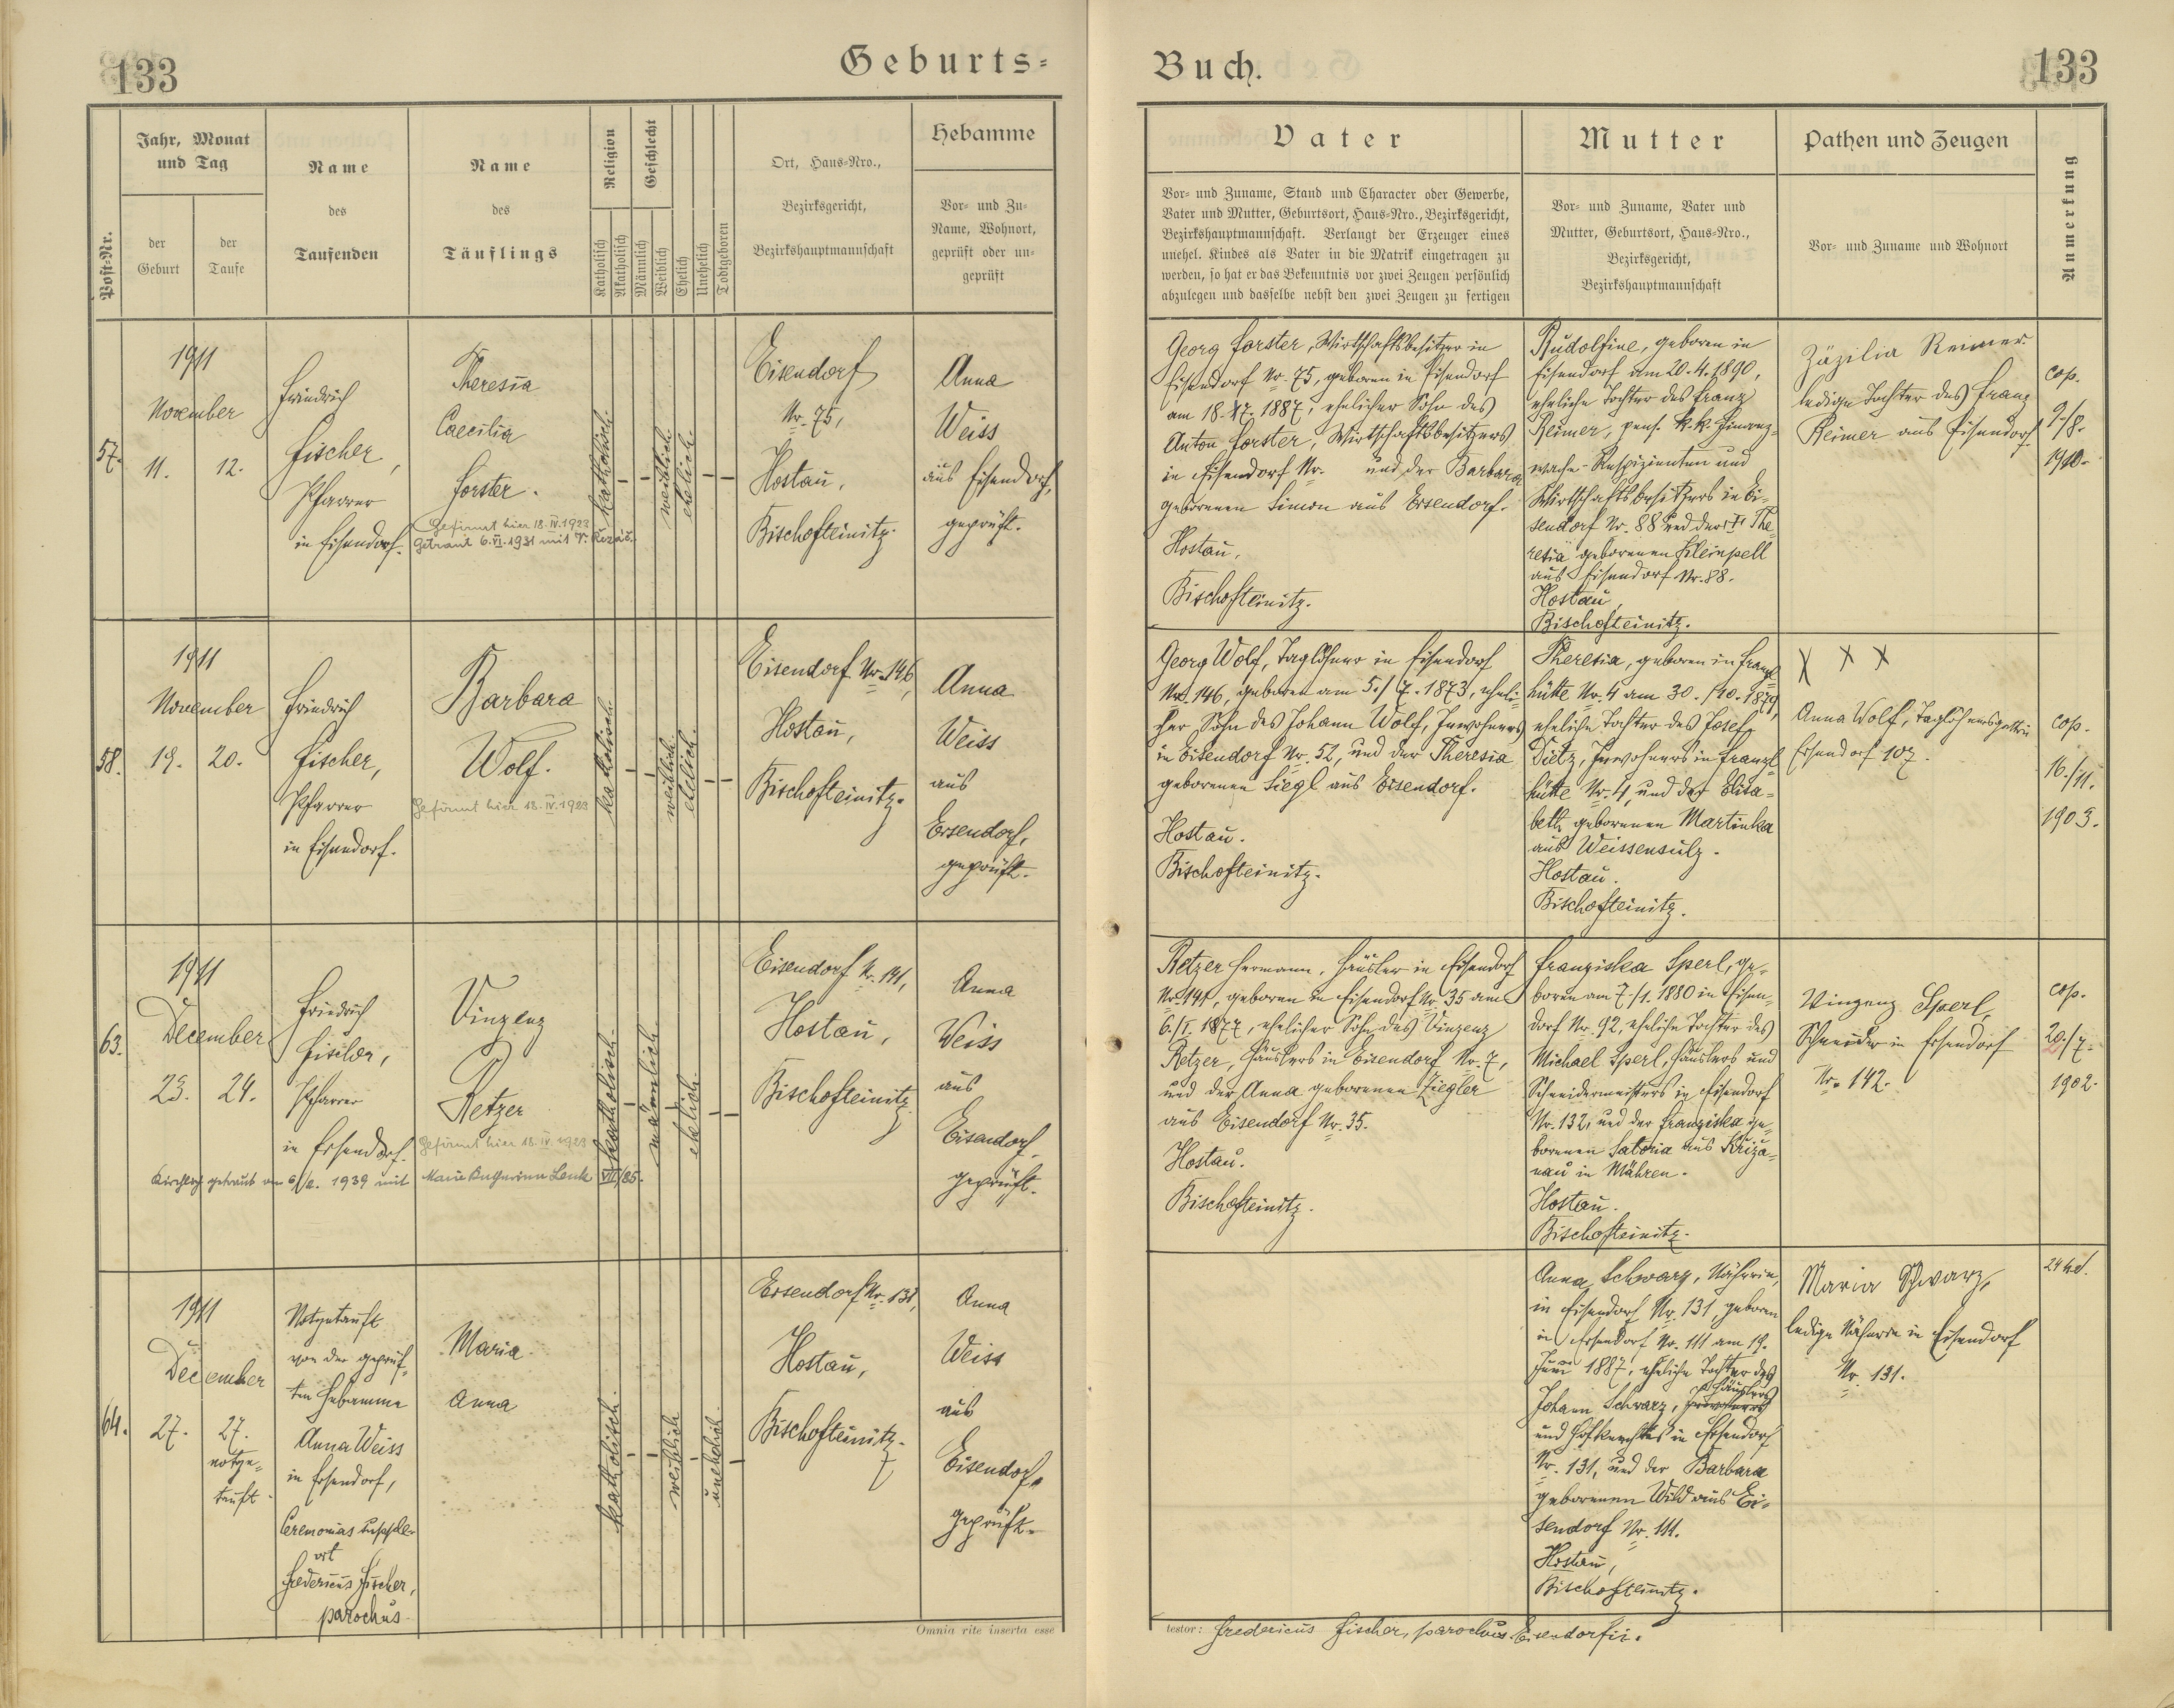 133
Geburts=
Post-Nr.
Jahr, Monat
und Tag
der
Geburt
der
Taufe
Name
des
Taufenden
Name
des
Täuflings
Religion
Katholisch
Akatholisch
Geschlecht
Männlich
Weiblich
Ehelich
Unehelich
Todtgeboren
Ort, Haus-Nro.,
Bezirksgericht,
Bezirkshauptmannschaft
Hebamme
Vor- und Zu-
Name, Wohnort,
geprüft oder un-
geprüft
57.
1911
November
11.
12.
Friedrich
Fischer,
Pfarrer
in Eisendorf.
Theresia
Caecilia
Forster.
Gefirmt hier 18.IV.1923
Getraut 6.VI.1931 mit
katholisch.
weiblich.
ehelich.
Eisendorf
Nr. 75,
Hostau,
Bischofteinitz
Anna
Weiss
aus Eisendorf,
geprüft.
58.
1911
November
19.
20.
Friedrich
Fischer,
Pfarrer
in Eisendorf.
Barbara
Wolf.
Gefirmt hier 18.IV.1923
katholisch.
weiblich.
ehelich.
Eisendorf Nr. 146,
Hostau,
Bischofteinitz.
Anna
Weiss
aus
Eisendorf,
geprüft.
63.
1911
December
23.
24.
Friedrich
Fischer,
Pfarrer
in Eisendorf.
Vinzenz
Retzer
Gefirmt hier 18.IV.1923
Kirchlich getraut am 1939 mit Marie
katholisch.
männlich.
ehelich.
Eisendorf Nr. 141,
Hostau,
Bischofteinitz
Anna
Weiss
aus
Eisendorf,
geprüft.
64.
1911
December
27.
27.
notge=
tauft.
Notgetauft
von der geprüf-
ten Hebamme
Anna Weiss
in Eisendorf,
Ceremonias supple-
vit
Fredericus Fischer,
parochus.
Maria
Anna
katholisch.
weiblich
unehelich.
Eisendorf Nr. 131,
Hostau,
Bischofteinitz.
Anna
Weiss
aus
Eisendorf,
geprüft.
Omnia rite inserta esse
Buch.
133
Vater
Vor- und Zuname, Stand und Character oder Gewerbe,
Vater und Mutter, Geburtsort, Haus-Nro., Bezirksgericht,
Bezirkshauptmannschaft. Verlangt der Erzeuger eines
unehel. Kindes als Vater in die Matrik eingetragen zu
werden, so hat er das Bekenntnis vor zwei Zeugen persönlich
abzulegen und dasselbe nebst den zwei Zeugen zu fertigen
Mutter
Vor- und Zuname, Vater und
Mutter, Geburtsort, Haus-Nro.,
Bezirksgericht,
Bezirkshauptmannschaft
Pathen und Zeugen
Vor- und Zuname und Wohnort
Anmerkung
Georg Forster, Wirtschaftsbesitzer in
Eisendorf Nr. 75, geboren in Eisendorf
am 18. 1887, ehelicher Sohn des
Anton Forster, Wirtschaftsbesitzers
in Eisendorf Nr. und der Barbara
geborenen Simon aus Eisendorf.
Hostau,
Bischofteinitz.
Rudolfine, geboren in
Eisendorf am 20.4.1890,
eheliche Tochter des Franz
Reimer, pens. k.k. Finanz=
wache-Respizienten und
Wirtschaftsbesitzers in Ei-
sendorf Nr. 88 und der The=
resia geborenen Kleinpell
aus Eisendorf Nr. 88.
Hostau,
Bischofteinitz.
Zäzilia Reimer
ledige Tochter des Franz
Reimer aus Eisendorf
cop.
9./8.
1910.
Georg Wolf, Taglöhner in Eisendorf
Nr. 146, geboren am 5./7. 1873, eheli-
cher Sohn des Johann Wolf, Inwohners
in Eisendorf Nr. 52, und der Theresia
geborenen Siegl aus Eisendorf.
Hostau.
Bischofteinitz.
Theresia, geboren in Franzl=
hütte Nr. 4 am 30./10. 1879,
eheliche Tochter des Josef
Dietz, Inwohners in Franzl
hütte Nr. 4, und der Elisa=
beth geborenen Martinka
aus Weissensulz.
Hostau.
Bischofteinitz.
X X X
Anna Wolf, Taglöhnersgattin
Eisendorf 107.
cop.
16./11.
1903.
Retzer Hermann, Häusler in Eisendorf
Nr. 141, geboren in Eisendorf Nr. 35 am
6./I. 1877, ehelicher Sohn des Vinzenz
Retzer, Häuslers in Eisendorf Nr. 7,
und der Anna geborenen Ziegler
aus Eisendorf Nr. 35.
Hostau.
Bischofteinitz.
Franziska Sperl, ge-
boren am 7./1. 1880 in Eisen-
dorf Nr. 92, eheliche Tochter des
Michael Sperl, Häuslers und
Schneidermeisters in Eisendorf
Nr. 132, und der Franziska ge-
borenen Satoria aus Kriza=
nau in Mähren.
Hostau.
Bischofteinitz.
Vinzenz Sperl,
Schneider in Eisendorf
Nr. 142.
cop.
20./7.
1902.
Anna Schwarz, Näherin,
in Eisendorf Nr. 131, geboren
in Eisendorf Nr. 111 am 19.
Juni 1887, eheliche Tochter des
Häuslers
Johann Schwarz, Inwohners
und Hofknechtes in Eisendorf
Nr. 131, und der Barbara
geborenen Wild aus Ei-
sendorf Nr. 111.
Hostau,
Bischofteinitz.
Maria Schwarz,
ledige Näherin in Eisendorf
Nr. 131.
testor: Fredericus Fischer, parochus Eisendorfii.